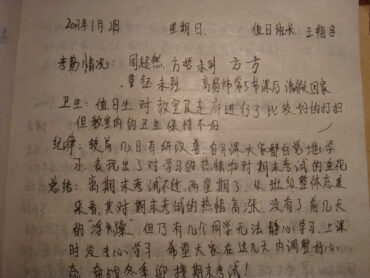 2007年1月2日 星期日 值日班长:王翰宇
考勤情况:周超然、方哲未到 方方
曾钰未到 高易炜第5节课后请假回家
卫生:值日生对教室及走廊进行了比较好的打扫
但教室内的卫生保持不好
纪律:较前几日有所改善,自习课大家都自觉地学
习,表现出了对学习的热情和对期末考试的重视
总结:离期末考试不过两星期了,从班级整体态度
来看,其对期末考试的热情高涨,没有了前几天
的“浮躁”但仍有几个同学无法静心学习,上课
时没专心学习,希望大家在这几天内调整好心
态,奋战冬季,迎接期末考试!